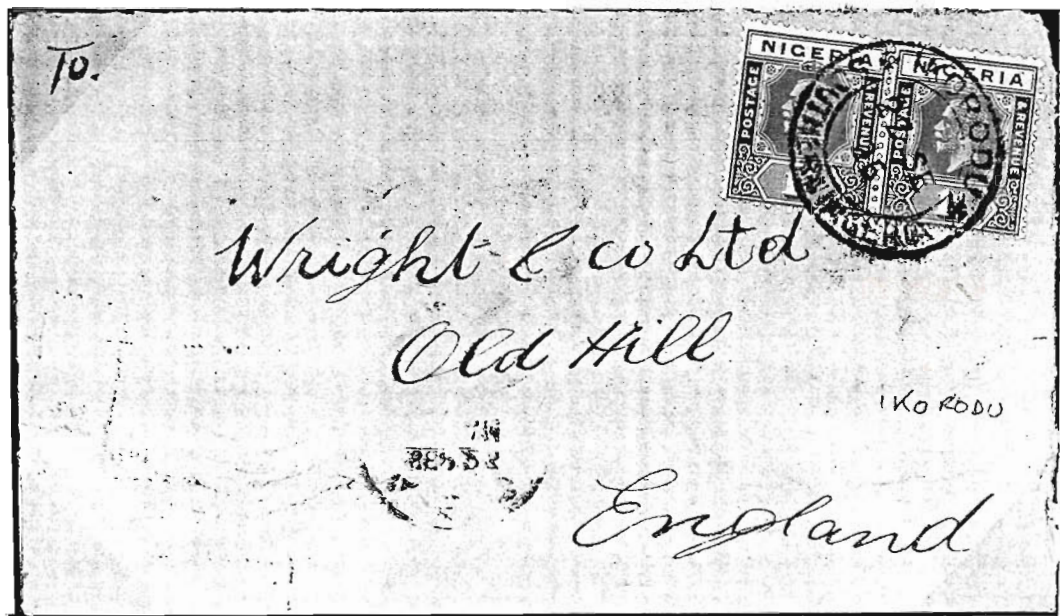 To.
NIGERIA NIGERIA
POSTAGE & REVENUE POSTAGE & REVENUE
IKORODU
NIGERIA
Wright & co Ltd
Old Hill
IKORODU
England